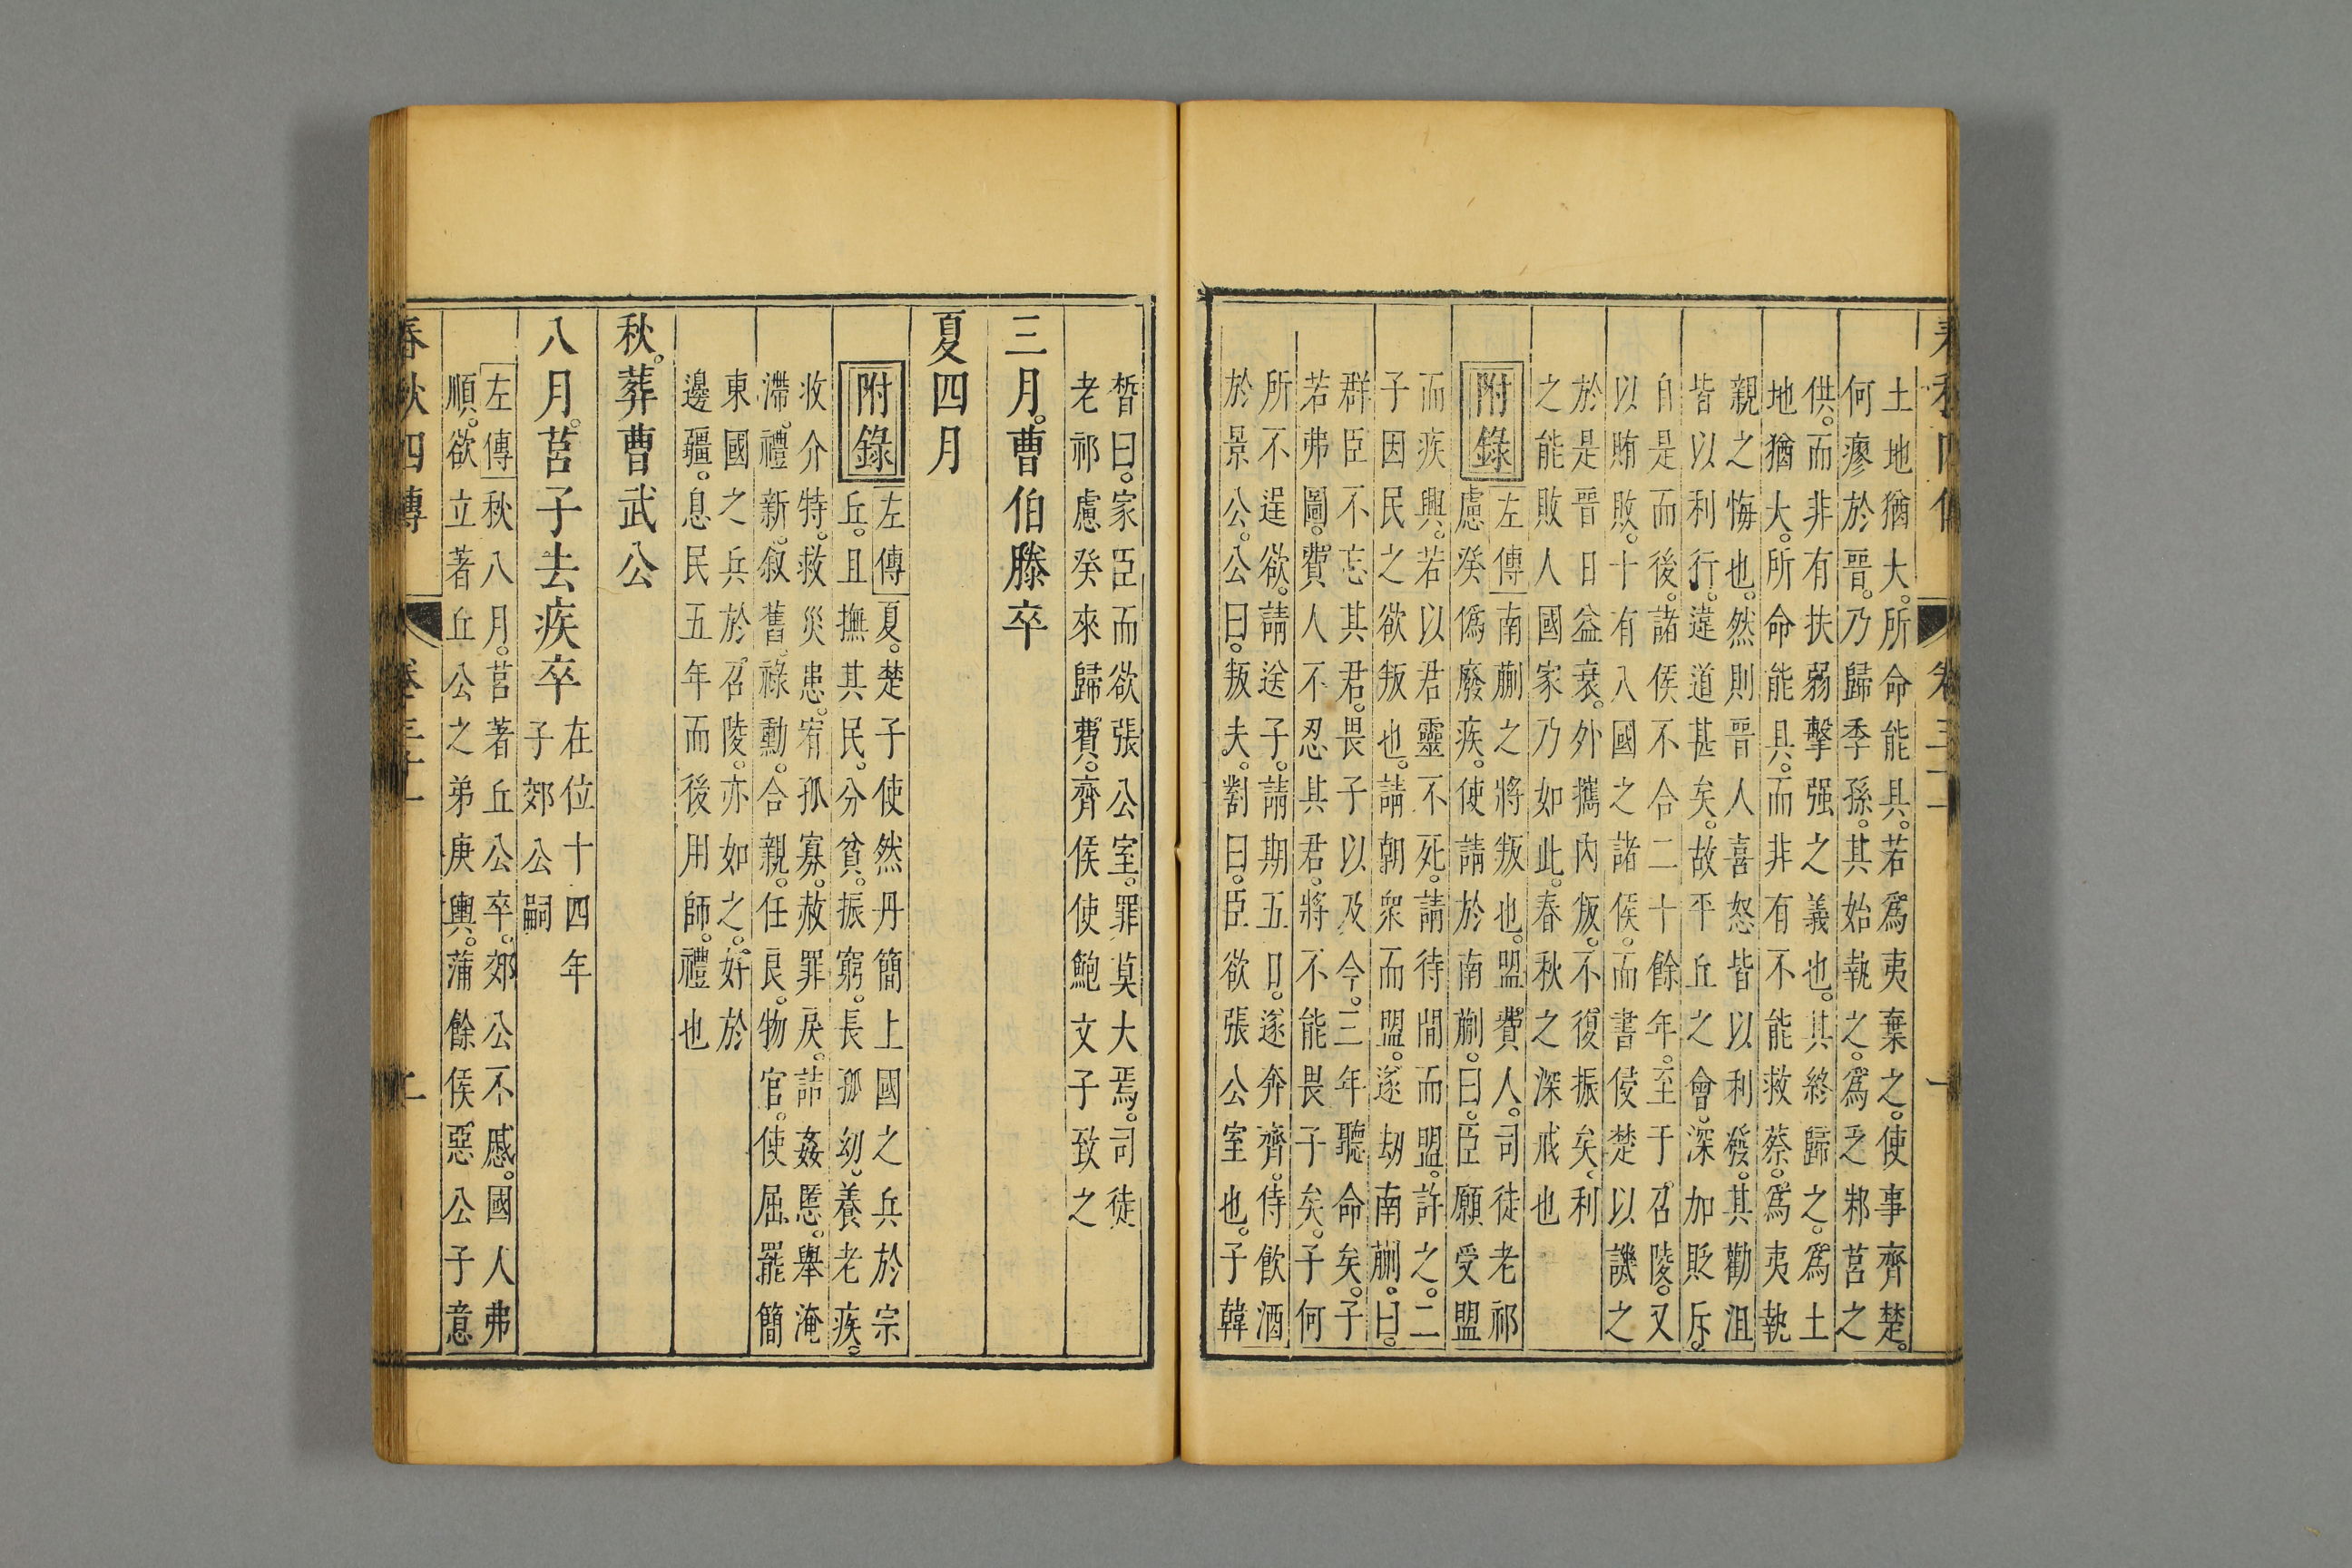 土地猶大。所命能具。若爲夷棄之。使事齊楚。
何瘳於晉。乃歸季孫。其始執之。爲乏邾莒之
供。而非有扶弱擊强之義也。其終歸之。爲土
地猶大。所命能具。而非有不能救蔡。爲夷執
親之悔也。然則晉人喜怒皆以利發。其勸沮
皆以利行。違道甚矣。故平丘之會。深加貶斥。
自是而後。諸侯不合二十餘年。至于召陵。又
以賄敗。十有八國之諸侯。而書侵楚以譏之
於是晉日益衰。外攜內叛。不復振矣。利
之能敗人國家乃如此。春秋之深戒也
附錄
左傳南蒯之將叛也。盟費人。司徒老祁
慮癸僞廢疾。使請於南蒯。曰。臣願受盟
而疾興。若以君靈不死。請待閒而盟。許之。二
子因民之欲叛也。請朝衆而盟。遂劫南蒯。曰。
群臣不忘其君。畏子以及今。三年聽命矣。子
若弗圖。費人不忍其君。將不能畏子矣。子何
所不逞欲。請送子。請期五日。遂奔齊。侍飲酒
於景公。公曰。叛夫。對曰。臣欲張公室也。子韓
晳曰。家臣而欲張公室。罪莫大焉。司徒
老祁慮癸來歸費。齊侯使鮑文子致之
三月。曹伯滕卒
夏四月
附錄
左傳夏。楚子使然丹簡上國之兵於宗
丘。且撫其民。分貧。振窮。長孤幼。養老疾。
收介特。救災患。宥孤寡。赦罪戾。詰姦慝。舉淹
滯。禮新。叙舊。祿勳。合親。任良。物官。使屈罷簡
東國之兵於召陵。亦如之。好於
邊疆。息民五年而後用師。禮也
秋。葬曹武公
八月。莒子去疾卒
在位十四年
子郊公嗣
左傳秋八月。莒著丘公卒。郊公不慼。國人弗
順。欲立著丘公之弟庚輿。蒲餘侯惡公子意
春秋四傳